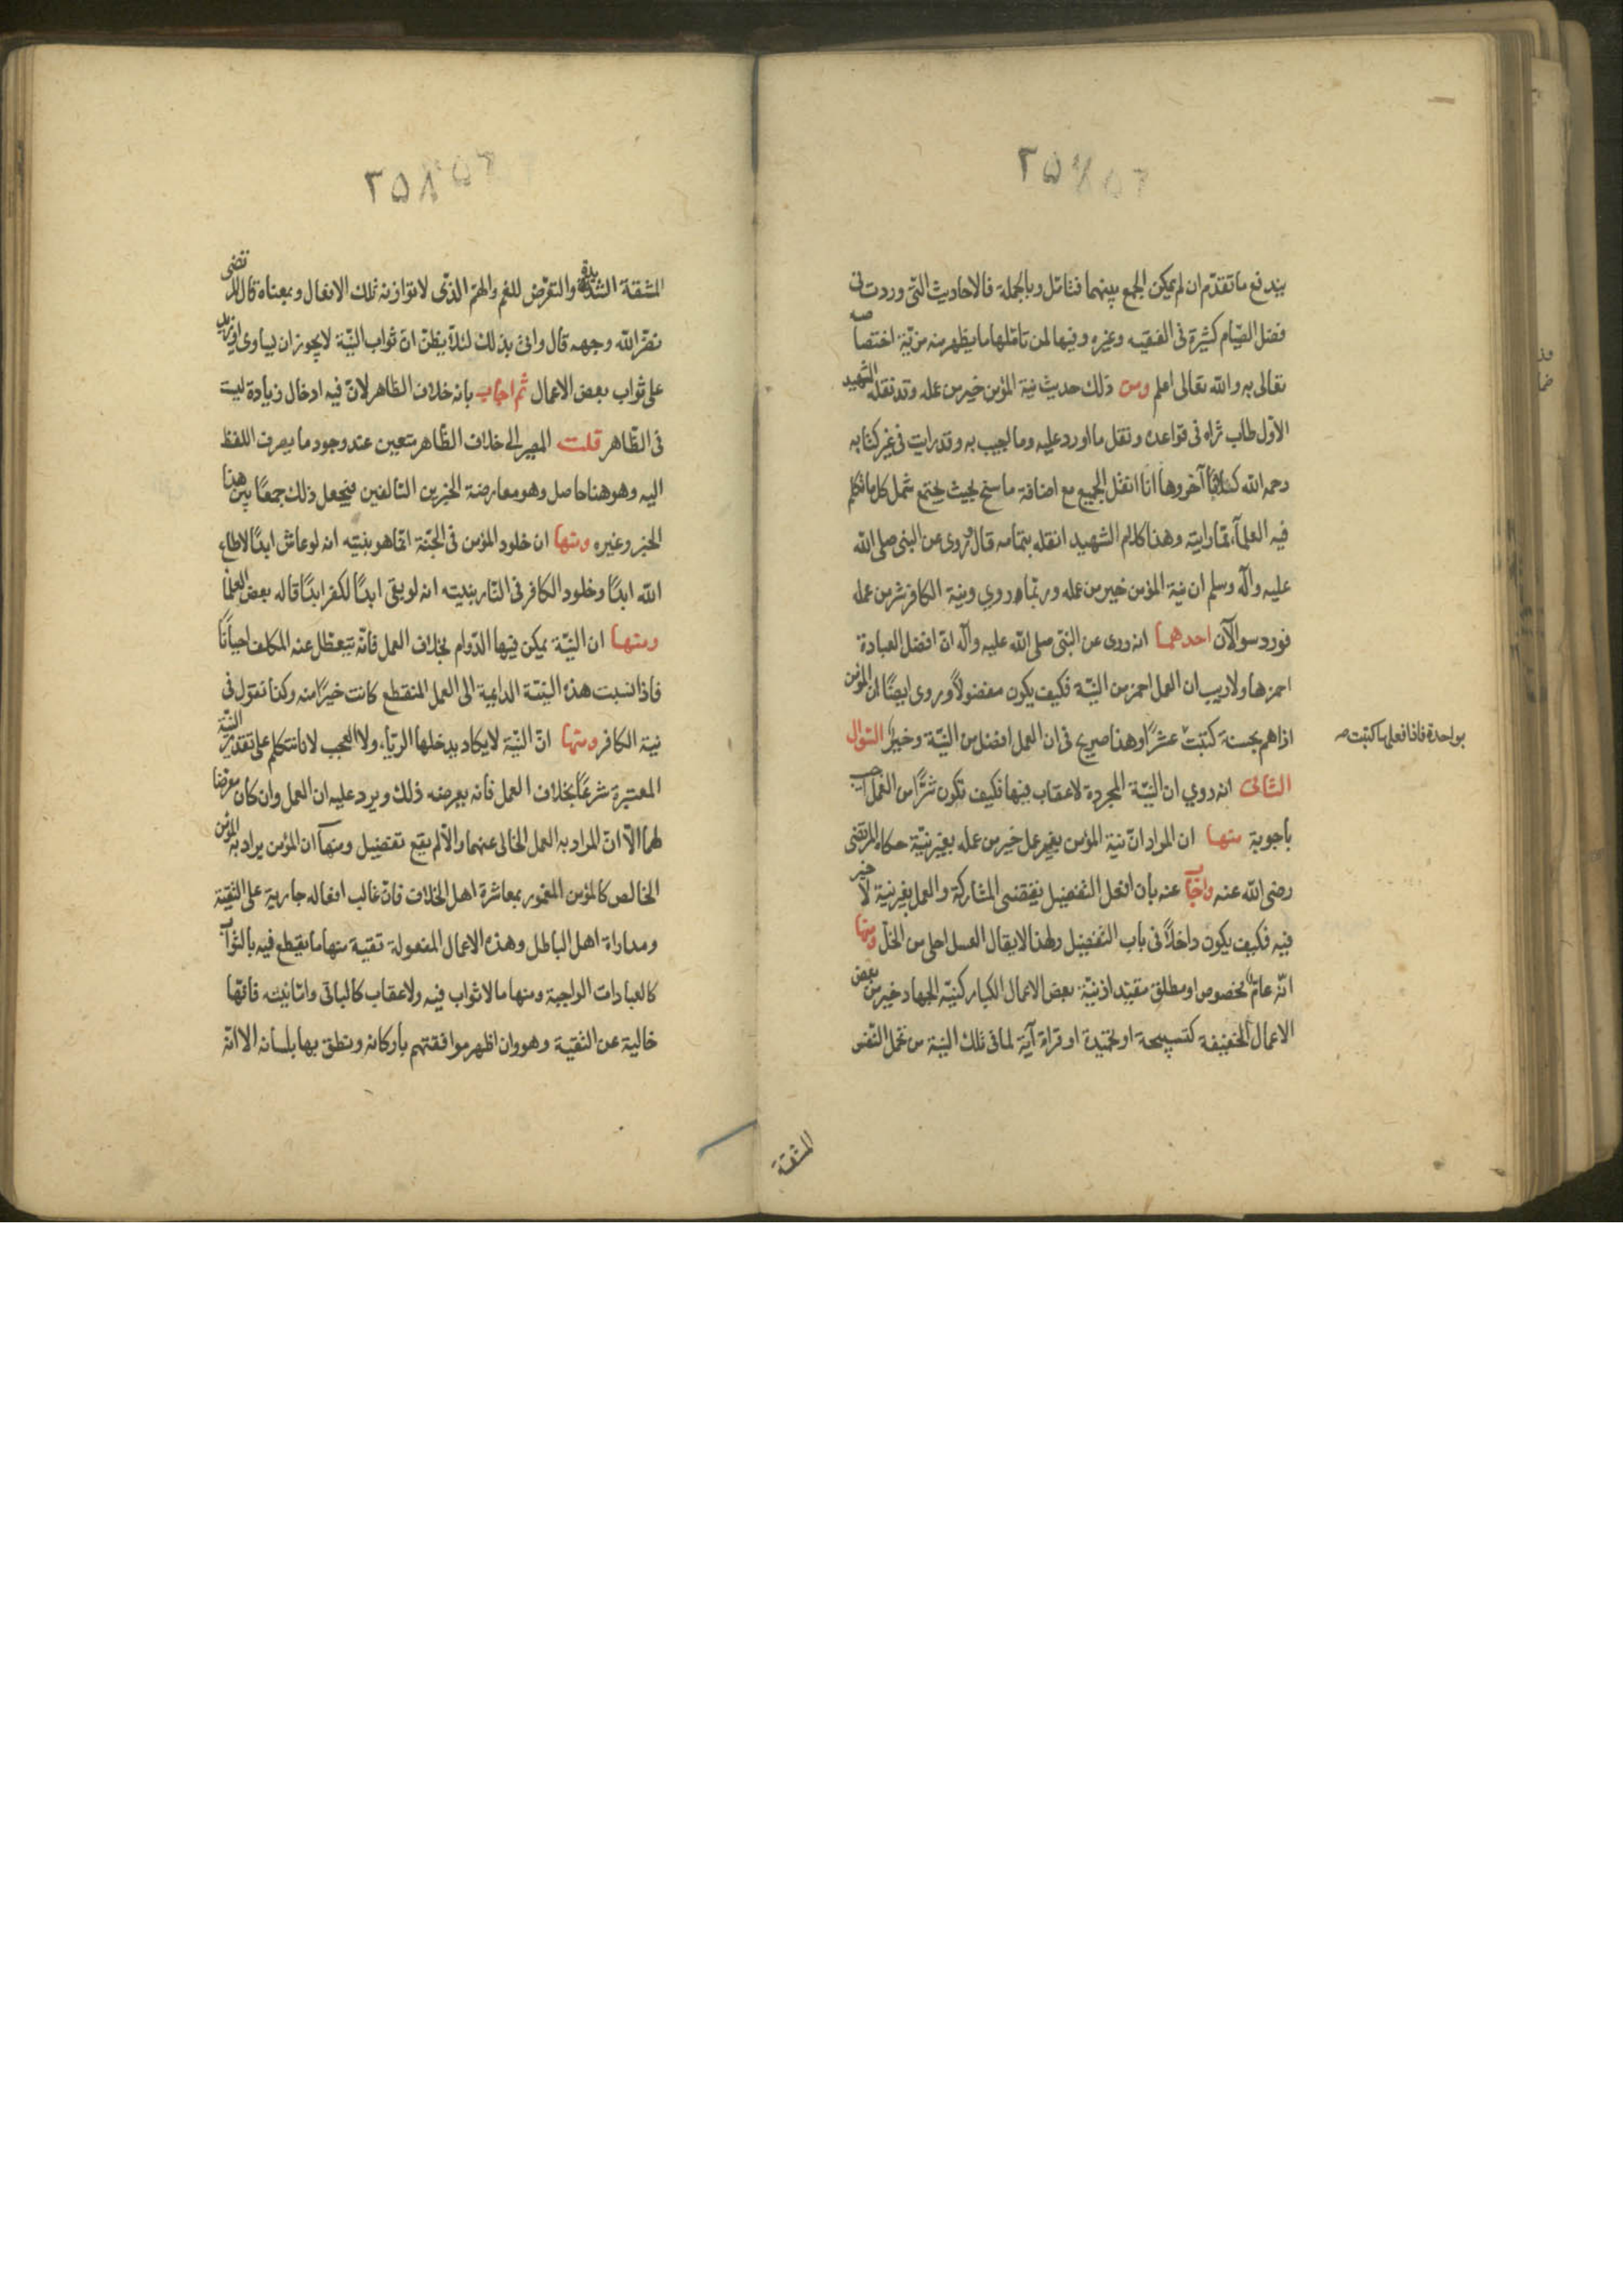 ۲۵۷
يندفع ما تقدّم ان لم يمكن الجمع بينهما فتامّل وبالجملة فالاحاديث التى وردت فى
فضل الصّيام كثيرة فى الفقيه وغيره وفيها لمن تاملها ما يظهر منه مزيّة اختصاصه
تعالى به والله تعالى اعلم ومن ذلك حديث نية المؤمن خير من عمله وقد نقله الشهيد
الاوّل طاب ثراه فى قواعده ونقل ما اورد عليه وما اجيب به وقد رايت فى غير كتابه
رحمه الله كلاما آخر وها انا انقل الجميع مع اضافة ما سنح بحيث يجتمع شمل كل ما تكلم
فيه العلمآء ممّا رايته وهذا كلام الشهيد انقله بتمامه قال روى عن النبى صلى الله
عليه وآله وسلم ان نية المؤمن خير من عمله وربّما روي ونية الكافر شر من عمله
فورد سوالان احدهما انه روى عن النبّى صلى الله عليه وآله انّ افضل العبادة
احمزها ولا ريب ان العمل احمز من النيّة فكيف يكون مفضولاً وروى ايضًا ان المؤمن
اذا هم بحسنة كتبت عشرًا وهذا صريح فى ان العمل افضل من النيّة وخير السّوال
بواحدة فاذا فعلها كتبت صه
الثانى انه روي ان النيّة المجردة لا عقاب فيها فكيف تكون شرًّا من العمل اجيب
باجوبة منها ان المراد انّ نية المؤمن بغير عمل خير من عمله بغير نيّة حكاه المرتضى
رضى الله عنه واجاب عنه بان افعل التفضيل يقتضى المشاركة والعمل بغير نية لا خير
فيه فكيف يكون داخلاً فى باب التفضيل ولهذا لا يقال العسل احلى من الخلّ ومنها
انّه عامّ مخصوص او مطلق مقيّد اذ نيّة بعض الاعمال الكبار كنيّة الجهاد خير من بعض
الاعمال الخفيفة كتسبيحة او تحميدة او قراة آية لما فى تلك النيّة من تحمل النّفس
المشقة
۲۵۸
المشقة الشديدة والتعرّض للغم والهمّ الذّى لا توازنه تلك الافعال وبمعناه قال المرتضى
نضّر الله وجهه قال واتى بذلك لئلّا يظنّ انّ ثواب النيّة لا يجوز ان يساوى او يزيد
على ثواب بعض الاعمال ثم اجاب بانه خلاف الظاهر لانّ فيه ادخال زيادة ليست
فى الظّاهر قلت المصير الى خلاف الظّاهر متعين عند وجود ما يصرف اللفظ
اليه وهو هنا حاصل وهو معارضة الخبرين السّالفين فيجعل ذلك جمعًا بين هذا
الخبر وغيره ومنها ان خلود المؤمن فى الجنّة انّما هو بنيّته انه لو عاش ابدًا لاطاع
الله ابدًا وخلود الكافر فى النّار بنيته انه لو بقى ابدًا لكفر ابدًا قاله بعض العلما
ومنها ان النيّة يمكن فيها الدّوام بخلاف العمل فانّه يتعطّل عنه المكلف احيانًا
فاذا نسبت هذه النيّة الدايمة الى العمل المنقطع كانت خيرًا منه وكذا نقول فى
نية الكافر ومنها انّ النيّة لا يكاد يدخلها الريآء ولا العجب لانا نتكلم على تقدير النيّة
المعتبرة شرعًا بخلاف العمل فانه يعرضه ذلك ويرد عليه ان العمل وان كان معرضا
لهما الّا انّ المراد به العمل الخالى عنهما والّا لم يقع تفضيل ومنها ان المؤمن يراد به المؤمن
الخالص كالمؤمن المغمور بمعاشرة اهل الخلاف فانّ غالب افعاله جارية على التقيّة
ومداراة اهل الباطل وهذه الاعمال المفعولة تقية منها ما يقطع فيه بالثواب
كالعبادات الواجبة ومنها ما لا ثواب فيه ولا عقاب كالباقى وامّا نيّته فانّها
خالية عن التقية وهو وان اظهر موافقتهم باركانه ونطق بها بلسانه الا انّه